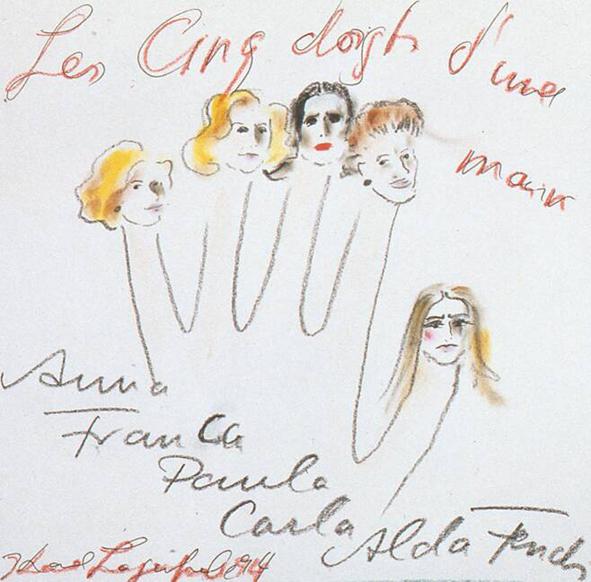 Les Cinq doigts d'une
main
Anna
Franca
Paola
Carla
Alda Fendi
Karl Lagerfeld